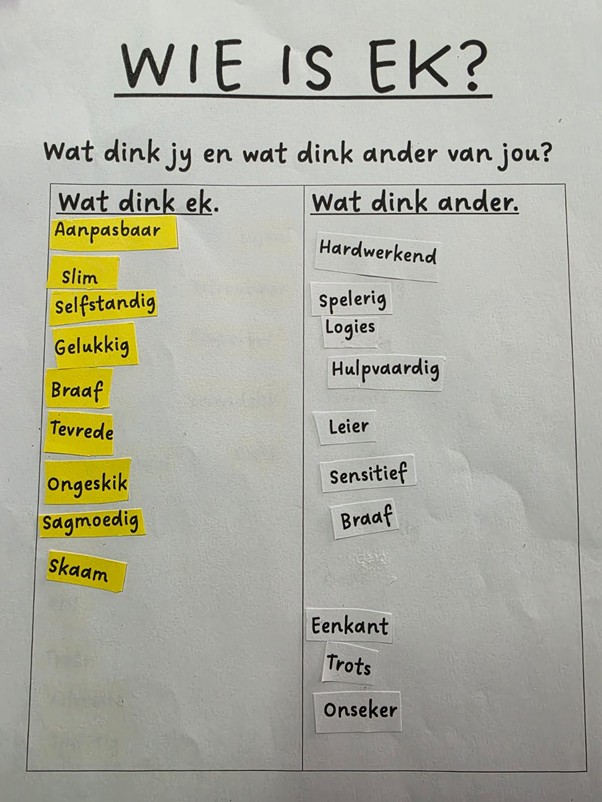 WIE IS EK?
Wat dink jy en wat dink ander van jou?
Wat dink ek.
Aanpasbaar
Slim
Selfstandig
Gelukkig
Braaf
Tevrede
Ongeskik
Sagmoedig
Skaam
Wat dink ander.
Hardwerkend
Spelerig
Logies
Hulpvaardig
Leier
Sensitief
Braaf
Eenkant
Trots
Onseker